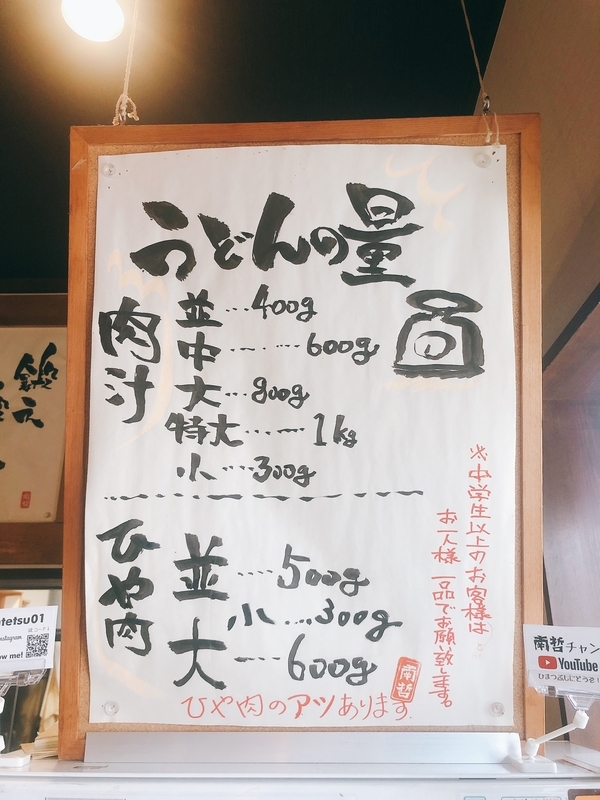 うどんの量
肉汁
並…400g
中……600g
大…800g
特大……1kg
小…300g
ひや肉
並…500g
小…300g
大…600g
ひや肉のアツあります。
※中学生以上のお客様は
お一人様 一品でお願い致します。
南哲
tetsu01
nstagram
ow me!
南哲チャン
YouTube
ひまつぶしにどうぞ!
鍛え